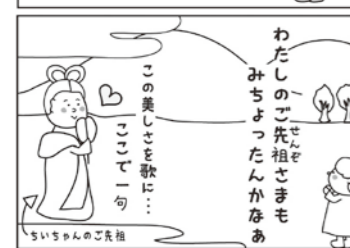 わたしのご先祖さまも
せんぞ
みちょったんかなぁ
この美しさを歌に…
ここで一句
ちいちゃんのご先祖